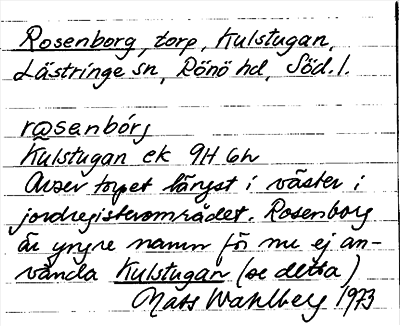 Rosenborg, torp, Kulstugan,
Lästringe sn, Rönö hd, Söd. l.
rωsenbórj
Kulstugan ek 9H 6h
Avser torpet längst i väster i
jordregisterområdet. Rosenborg
är yngre namn för nu ej an-
vända Kulstugan (se detta)
Mats Wahlberg 1973